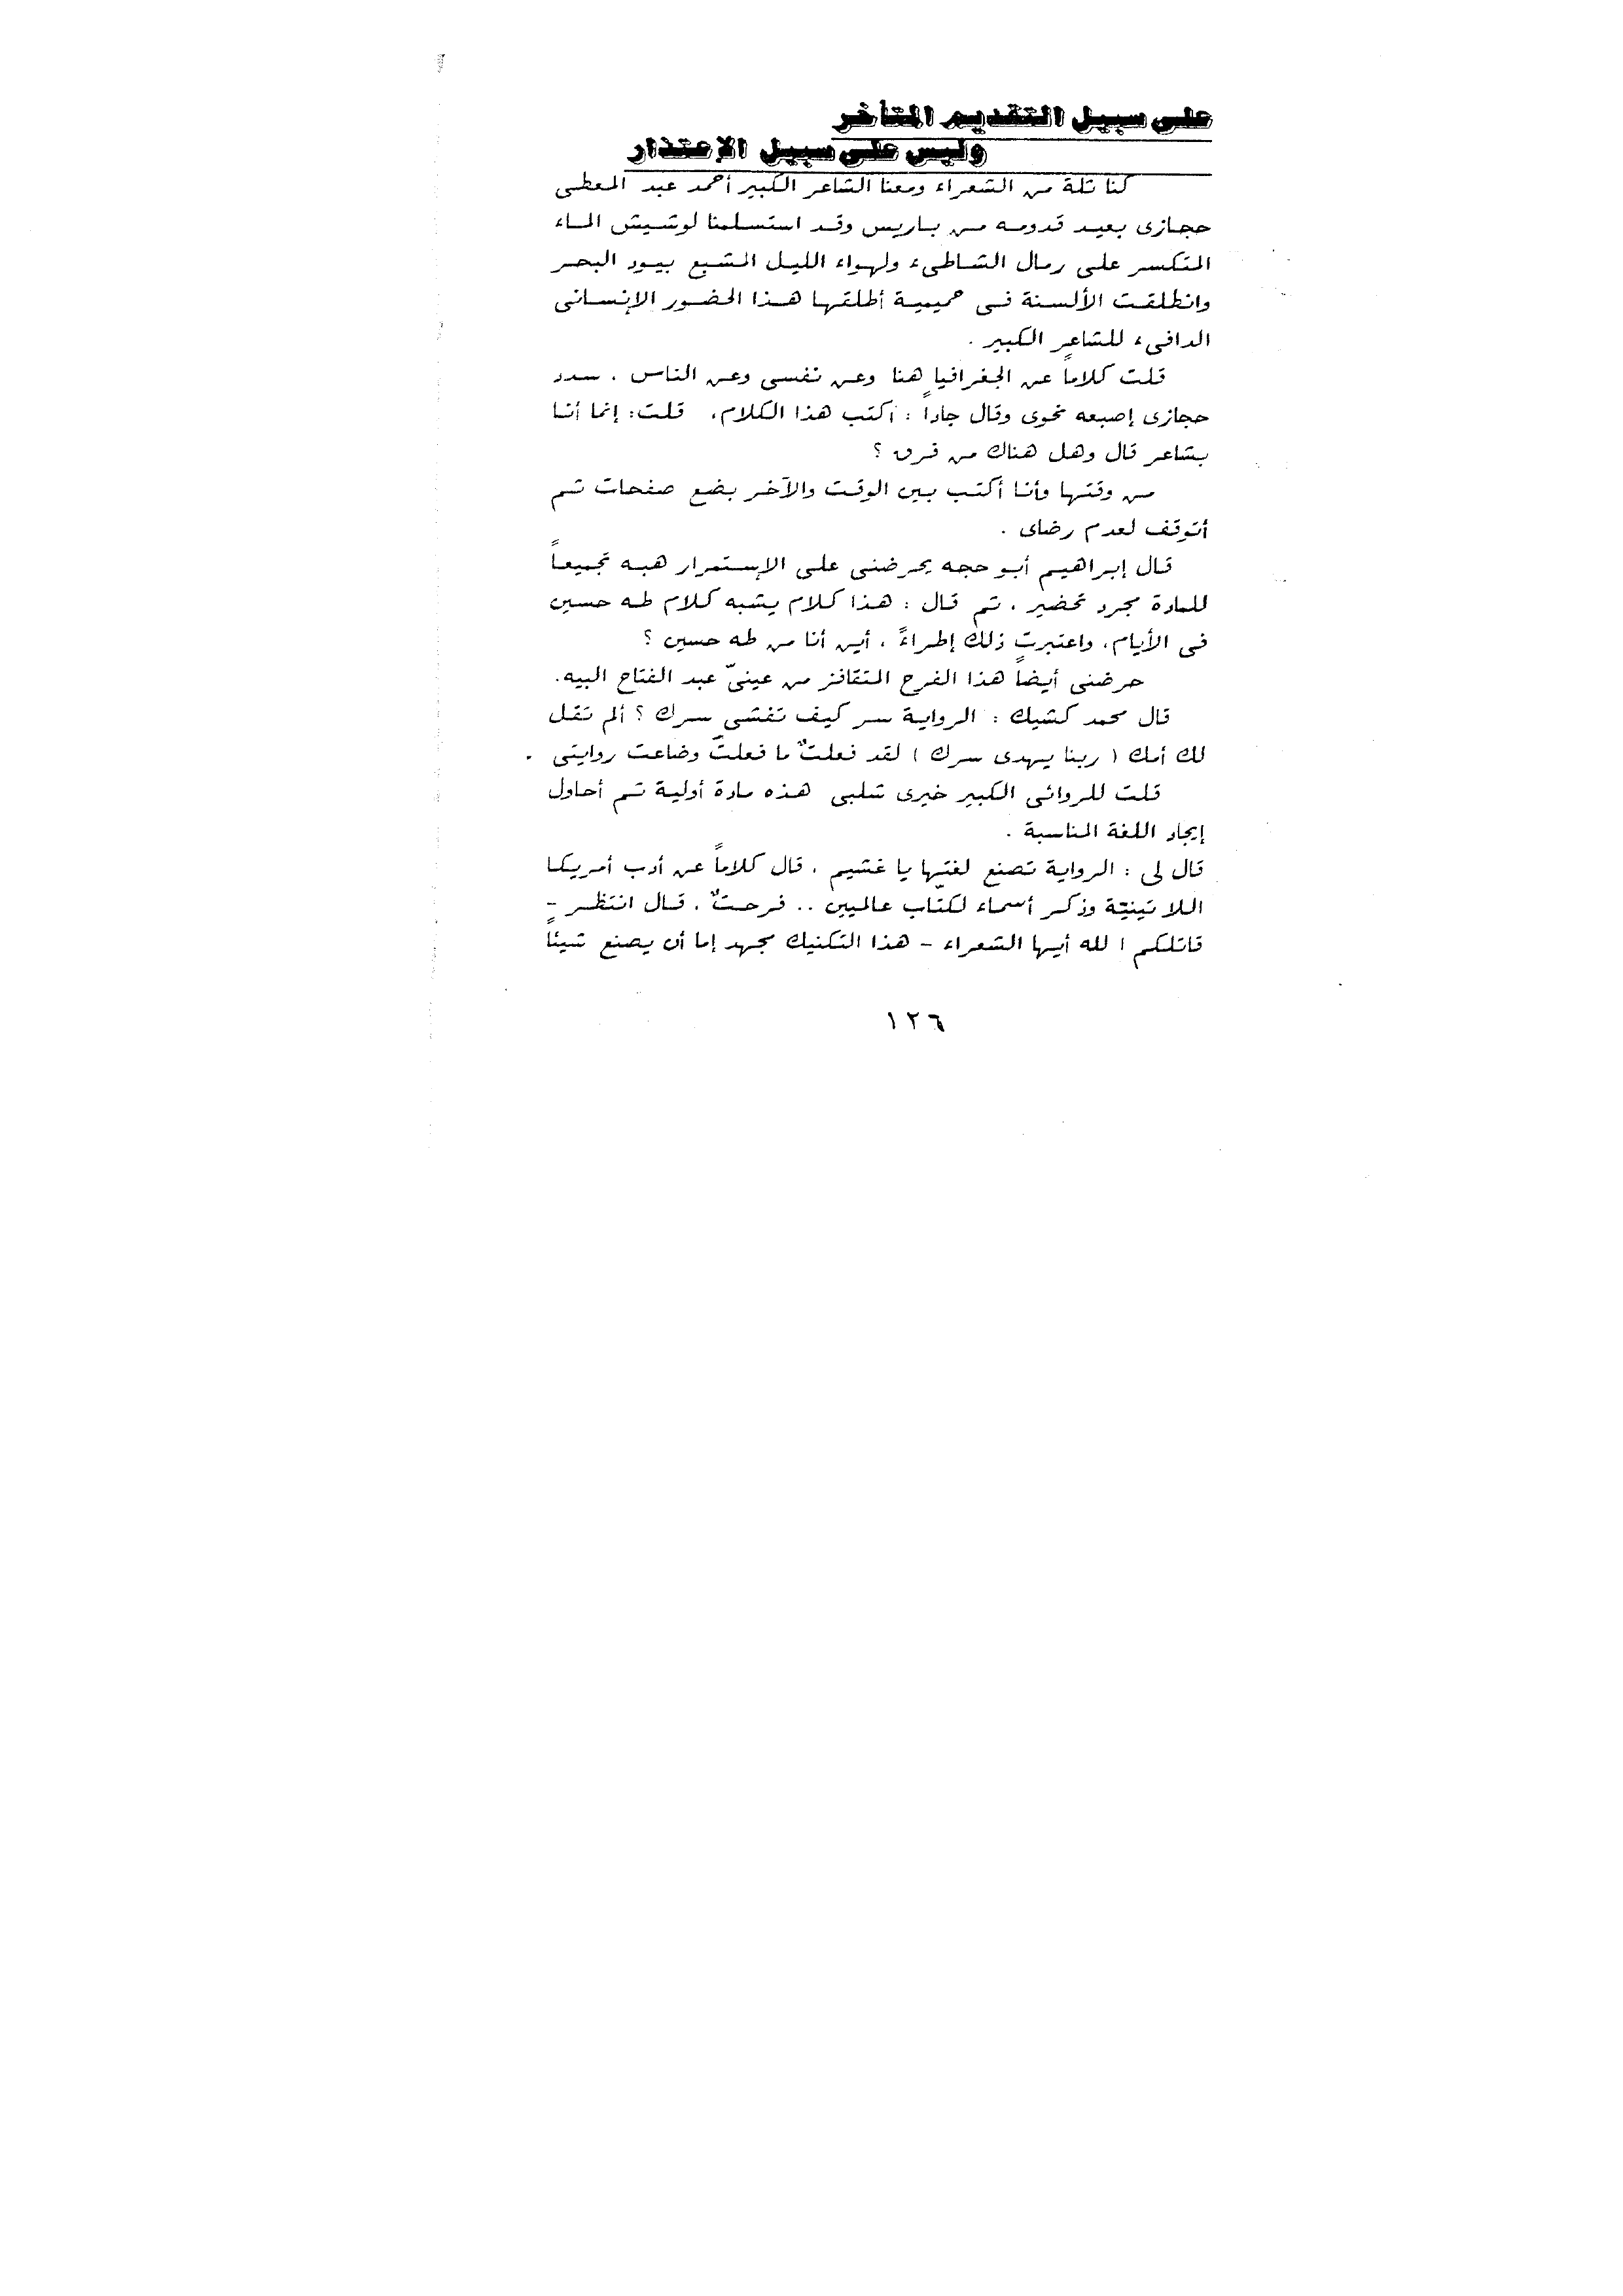 على سبيل التقديم المتأخر
وليس على سبيل الإعتذار
كنا ثلة من الشعراء ومعنا الشاعر الكبير أحمد عبد المعطى
حجازى بعيد قدومه من باريس وقد استسلمنا لوشيش الماء
المتكسر على رمال الشاطىء ولهواء الليل المشبع بيود البحر
وانطلقت الألسنة فى حميمية أطلقها هذا الحضور الإنسانى
الدافىء للشاعر الكبير .
قلت كلاماً عن الجغرافيا هنا وعن نفسى وعن الناس . سدد
حجازى إصبعه نحوى وقال جاداً : أكتب هذا الكلام، قلت: إنما أنا
بشاعر قال وهل هناك من فرق ؟
من وقتها وأنا أكتب بين الوقت والآخر بضع صفحات ثم
أتوقف لعدم رضاى .
قال إبراهيم أبو حجه يحرضنى على الإستمرار هبه تجميعاً
للمادة مجرد تحضير ، ثم قال : هذا كلام يشبه كلام طه حسين
فى الأيام، واعتبرت ذلك إطراءً ، أين أنا من طه حسين ؟
حرضنى أيضاً هذا الفرح المتقافز من عينىّ عبد الفتاح البيه.
قال محمد كشيك : الرواية سر كيف تفشى سرك ؟ ألم تقل
لك أمك ( ربنا يهدى سرك ) لقد فعلتٌ ما فعلتَ وضاعت روايتى .
قلت للروائى الكبير خيرى شلبى هذه مادة أولية ثم أحاول
إيجاد اللغة المناسبة .
قال لى : الرواية تصنع لغتها يا غشيم ، قال كلاماً عن أدب أمريكا
اللاتينيّة وذكر أسماء لكتّاب عالميين .. فرحتٌ . قال انتظر -
قاتلكم الله أيها الشعراء - هذا التكنيك مجهد إما أن يصنع شيئاً
١٢٦